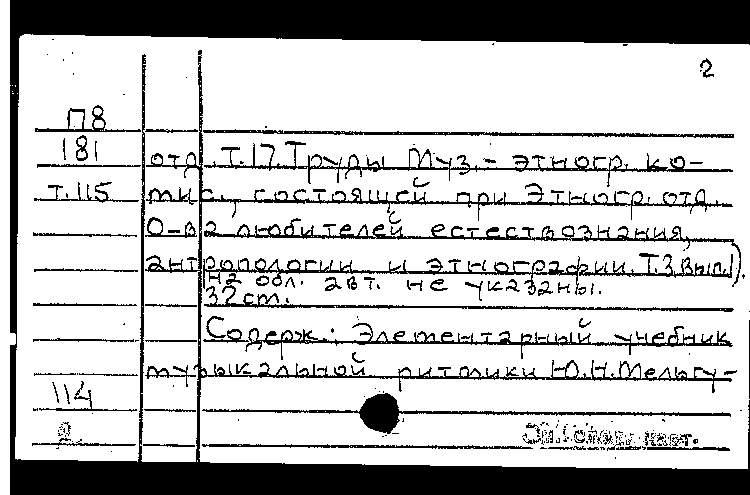 2
П8
181
т.115
отд. Т.17. Труды Муз.- этногр. ко-
мис., состоящей при Этногр. отд.
О-ва любителей естествознания,
антропологии и этнографии. Т.3, Вып.1).
На обл. авт. не указаны.
32 cm.
Содерж.: Элементарный учебник
музыкальной ритмики Ю.Н.Мельгу-
114
2.